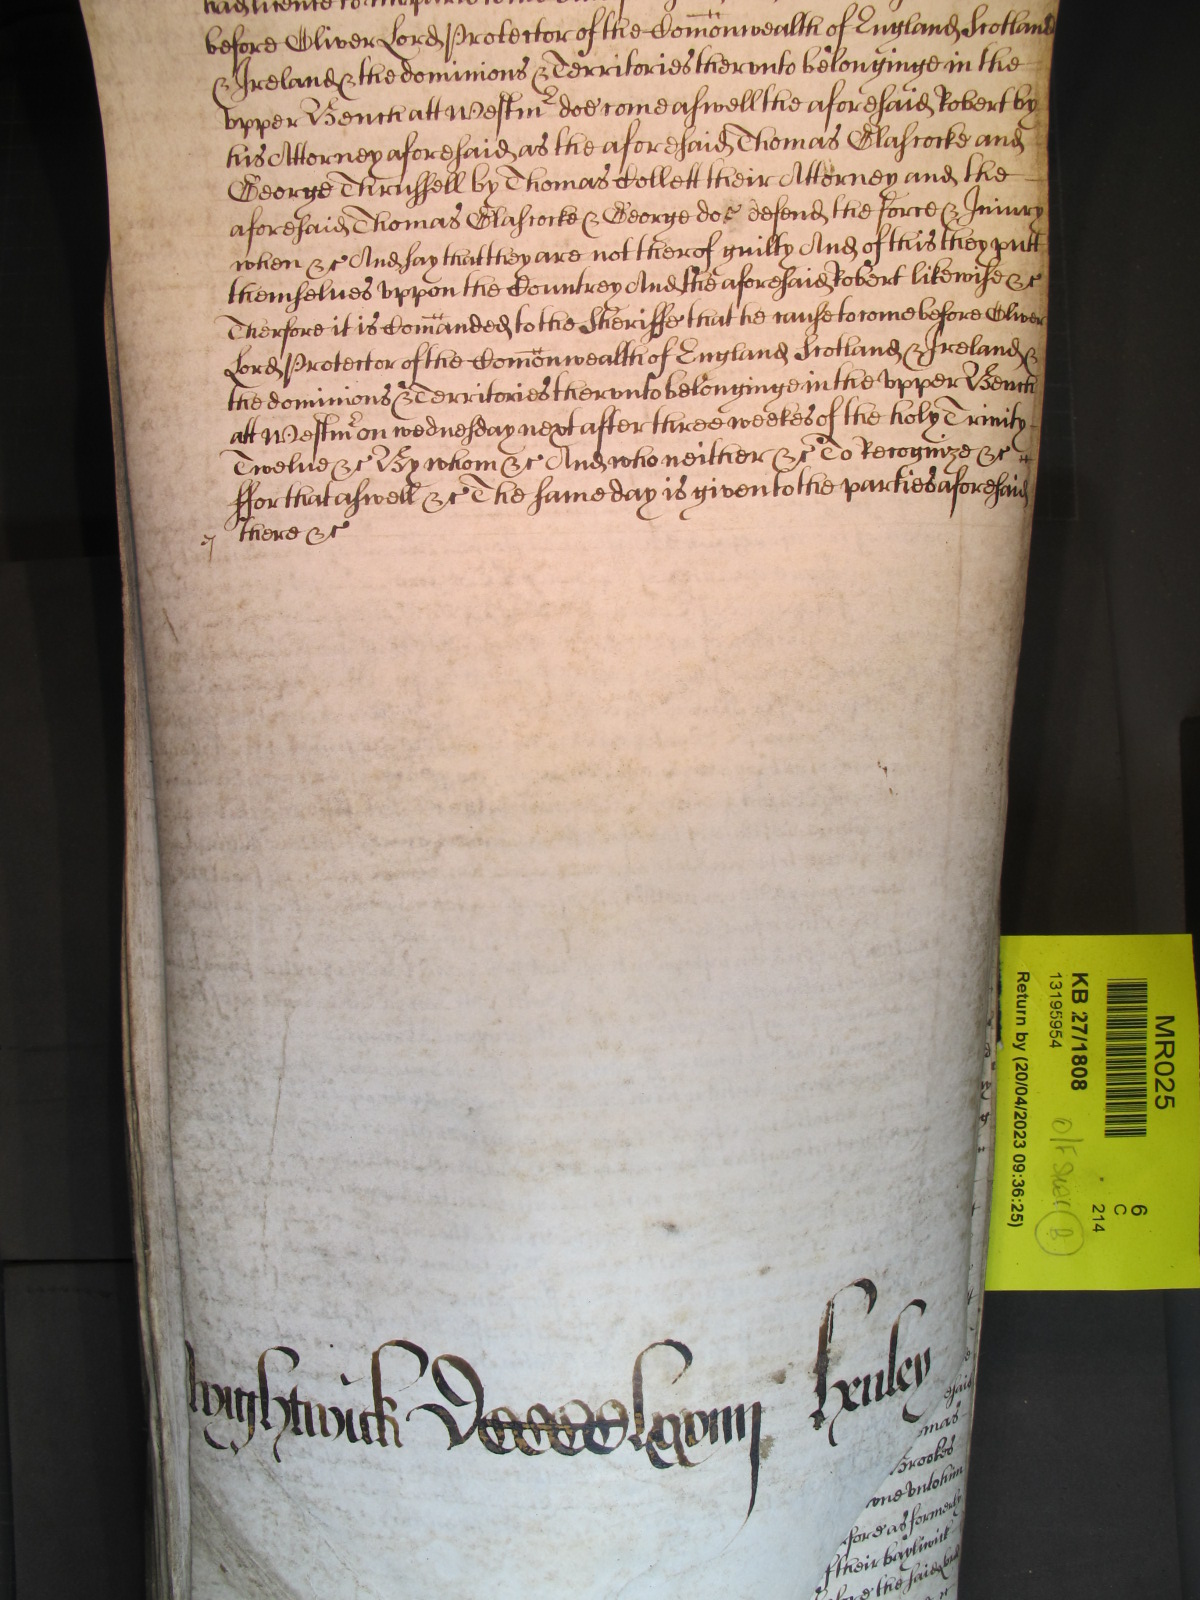 had licence to
before Oliver Lord Protector of the Com̄onwealth of England Scotland
& Ireland & the dominions & Territories thervnto belonginge in the
vpper Bench att Westmr doe come aswell the aforesaid Robert by
his Attorney aforesaid as the aforesaid Thomas Glascocke and
George Thrussell by Thomas Collett their Attorney and the
aforesaid Thomas Glascocke & George doe defend the force & Iniury
when &c And say that they are not therof guilty And of this they putt
themselues vppon the Countrey And the aforesaid Robert likewise &c
Therfore it is Com̄anded to the Sheriffe that he cause to come before Oliver
Lord Protector of the Com̄onwealth of England Scotland & Ireland &
the dominions & Territories thervnto belonginge in the vpper Bench
att Westmr on wednesday next after three weekes of the holy Trinity
Twelue &c By whom &c And who neither &c To Recognize &c
ffor that aswell &c The same day is given to the parties aforesaid
there &c
MR025
KB 27/1808
13195954
Return by (20/04/2023 09:36:25)
6
C
214
B
wightwick
henley
said
mas
Brookes
one vnto him
fore as formerly
f their bayliwick
before the said